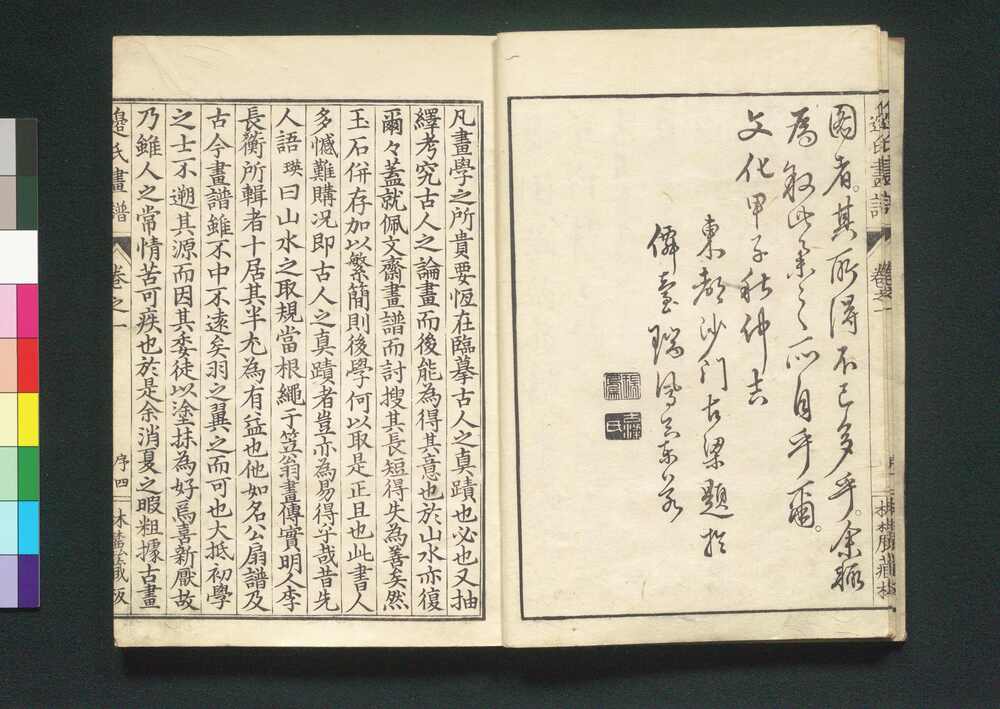 邊氏畫譜
卷之一
圖者。其所得不已多乎。余輙
為敘此
目乎爾。
文化甲子秋仲吉
東都沙門古梁題於
僊臺瑞鳳
凡畫學之所貴要恆在臨摹古人之真蹟也必也又抽
繹考究古人之論畫而後能為得其意也於山水亦復
爾々蓋就佩文齋畫譜而討搜其長短得失為善矣然
玉石併存加以繁簡則後學何以取是正且也此書人
多憾難購况即古人之真蹟者豈亦為易得乎哉昔先
人語瑛曰山水之取規當根繩于笠翁畫傳實明人李
長蘅所輯者十居其半尤為有益也他如名公扇譜及
古今畫譜雖不中不遠矣羽之翼之而可也大抵初學
之士不遡其源而因其委徒以塗抹為好焉喜新厭故
乃雖人之常情苦可疾也於是余消夏之暇粗據古畫
邊氏畫譜
卷之一
序四
林麓藏版